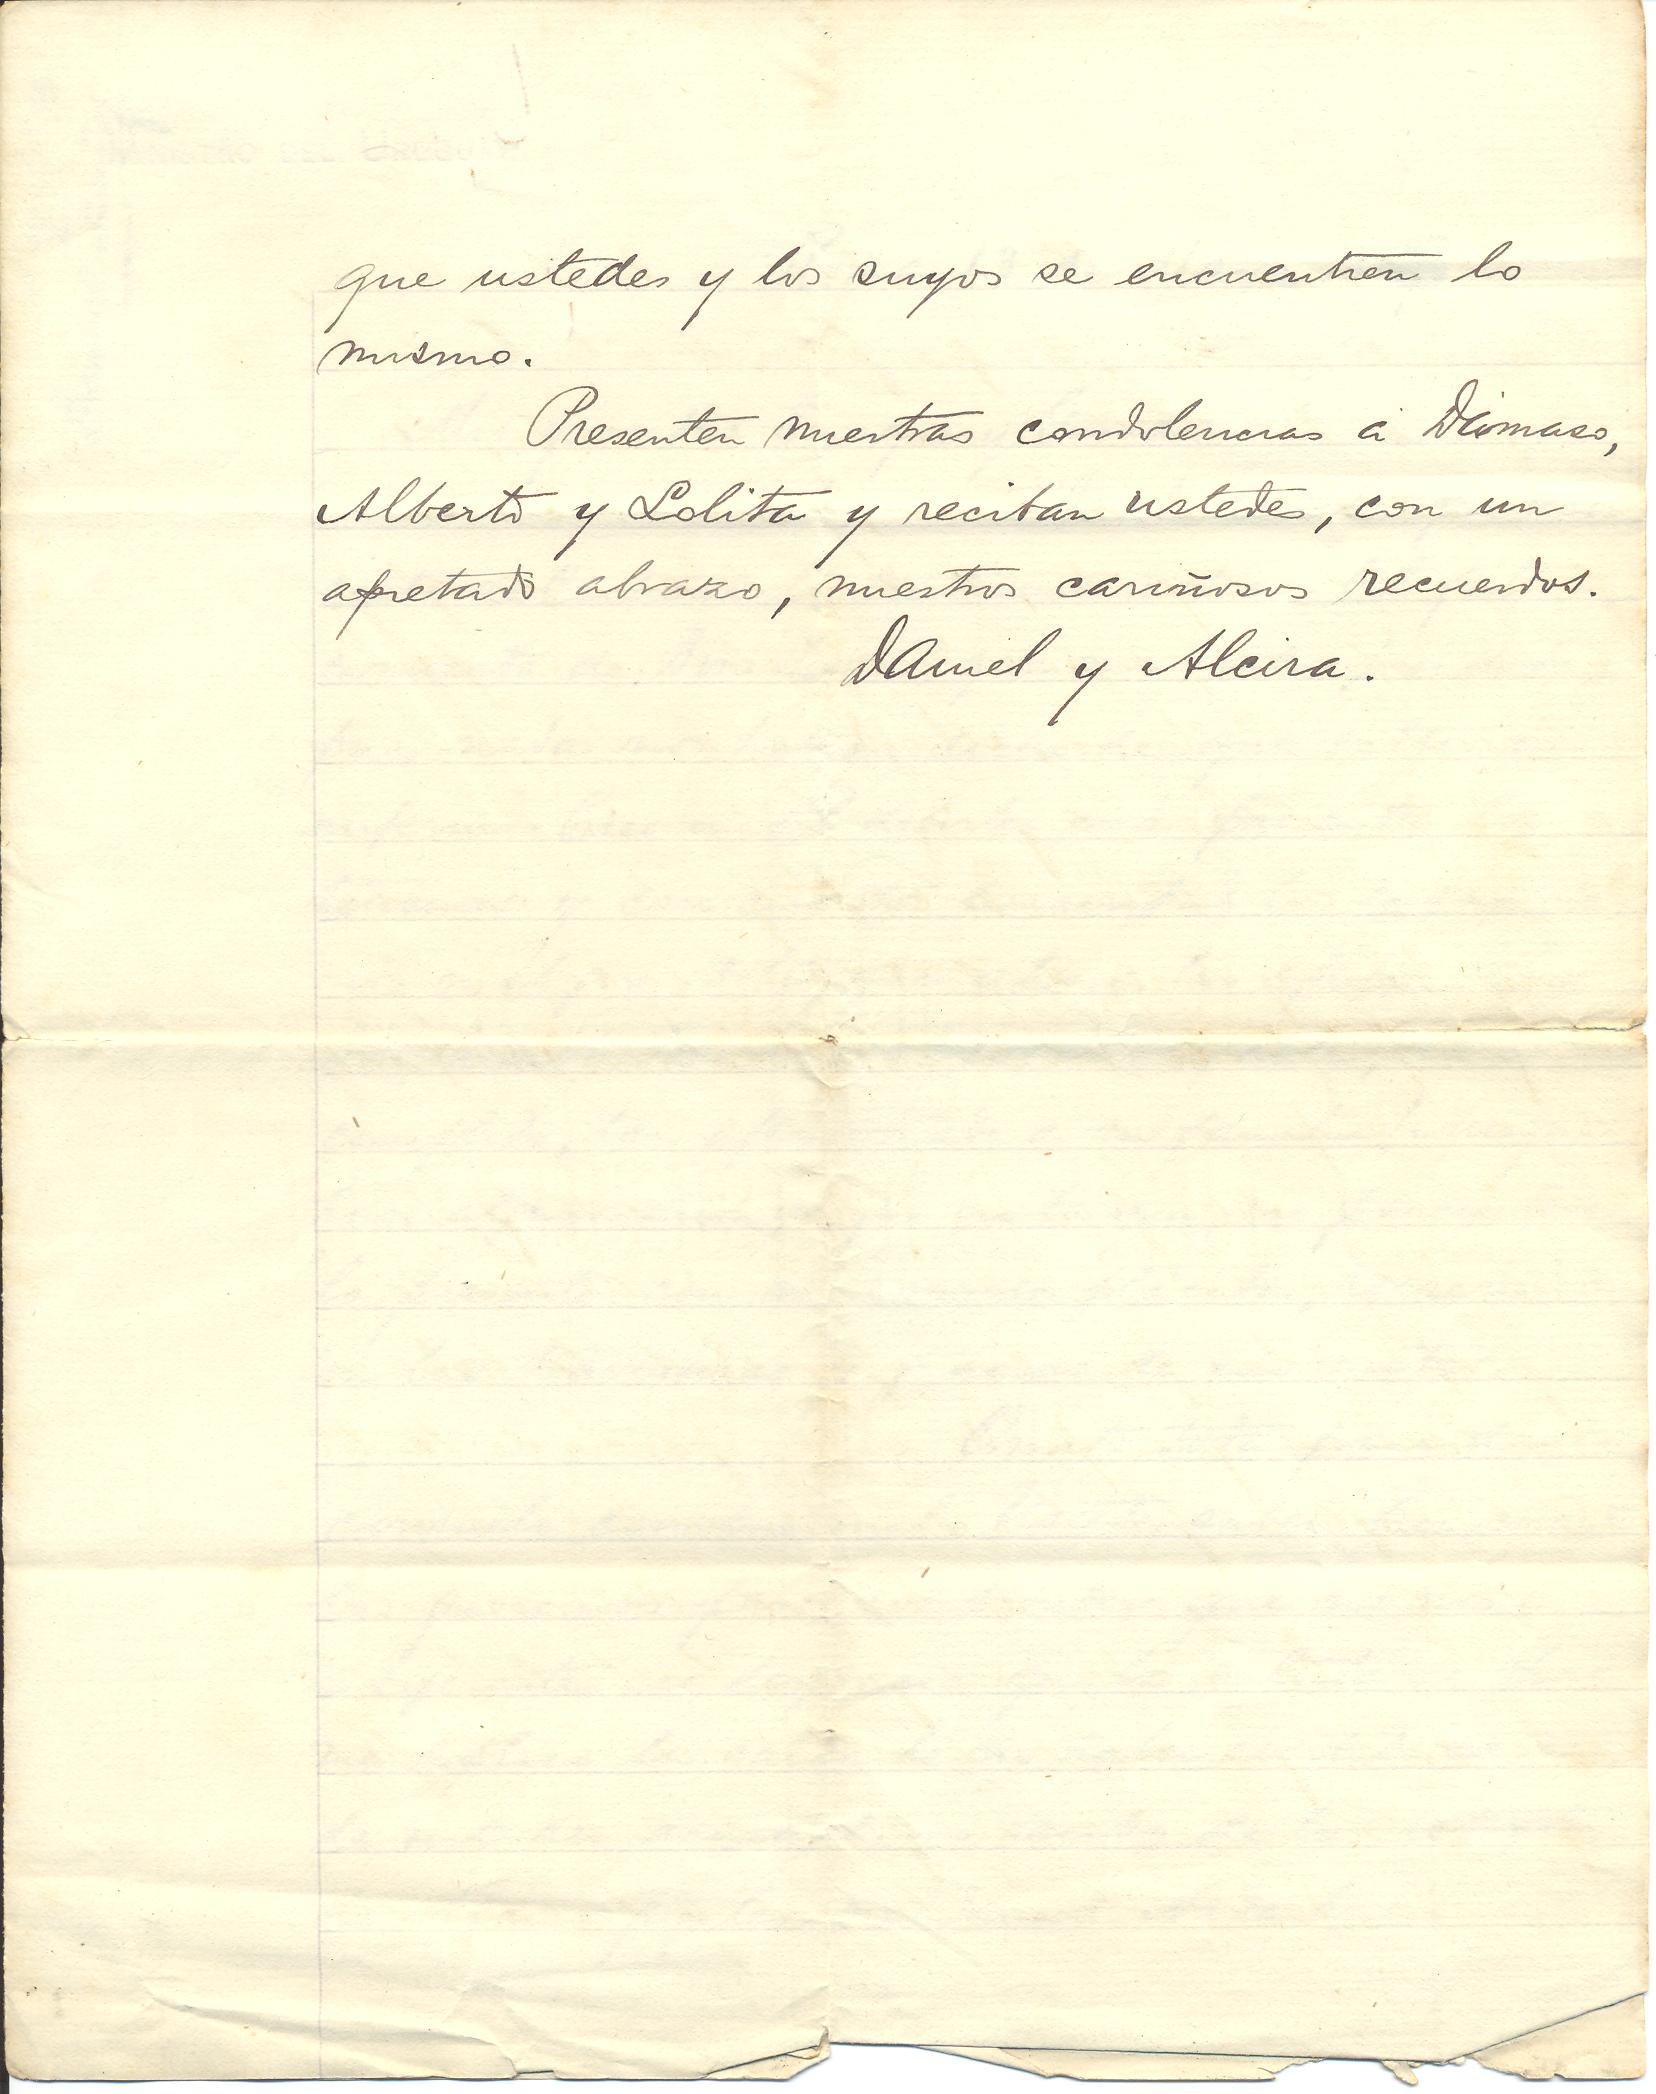 que ustedes y los suyos se encuentren lo
mismo.
Presenten nuestras condolencias á Dámaso,
Alberto y Lolita y reciban ustedes, con un
apretado abrazo, nuestros cariñosos recuerdos.
Daniel y Alcira.